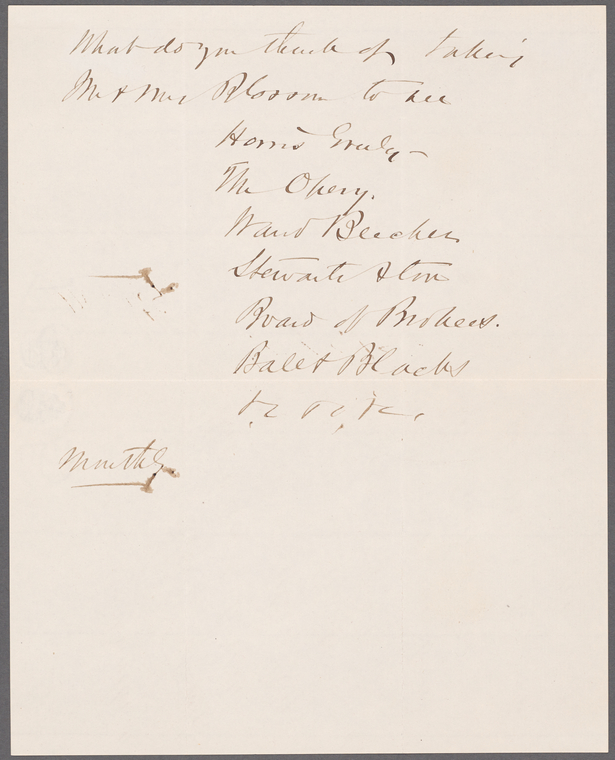 What do you think of taking
Mr & Mrs Blossom to see
Horris Greely -
The Opery.
Ward Beecher
Stewarts Store
Board of Brokers.
Ball & Blacks
&c &c &c.
Monthly.